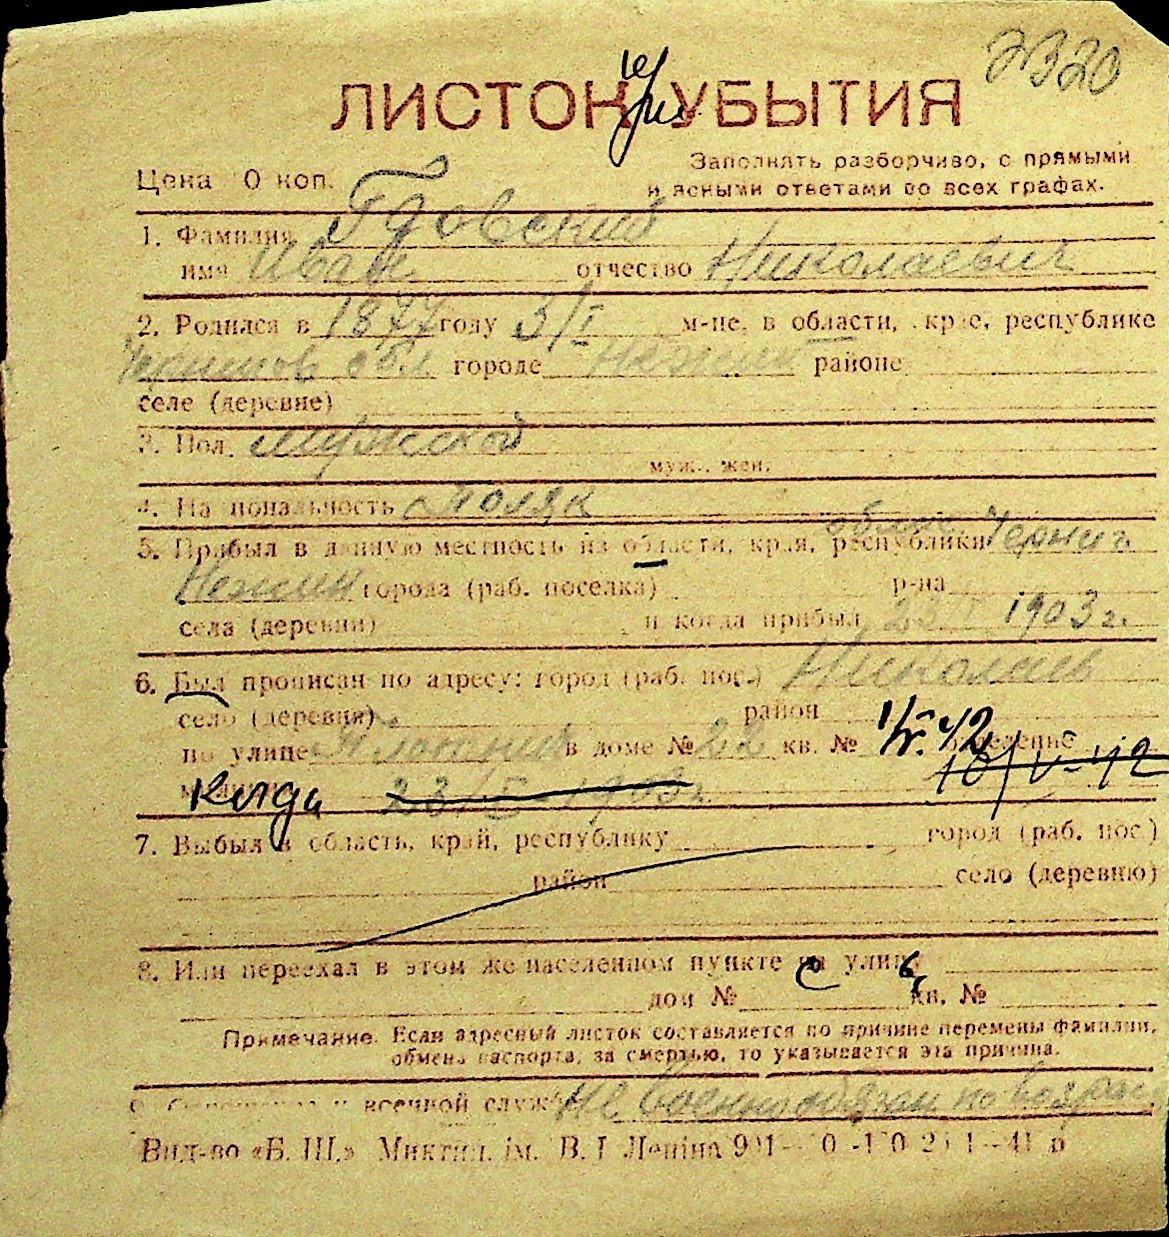 2320
ЛИСТОК УБЫТИЯ
Цена 0 коп.
Заполнять разборчиво, с прямыми
и ясными ответами во всех графах.
1. Фамилия Гдовский
имя Иван отчество Николаевич
2. Родился в 1877 году 3/I м-це, в области, крае, республике
Чернигов обл городе Нежин районе
селе (деревне)
3. Пол. мужской
муж., жен.
4. Национальность Поляк
5. Прибыл в данную местность из области, края, республики Черниг.
Нежин города (раб. поселка) р-на
села (деревни) и когда прибыл 23 1903 г.
6. Был прописан по адресу: город (раб. пос.) Николаев
село (деревня) район
по улице в доме № 22 кв. №
Когда 1903 г. 10/V-42
7. Выбыл в область, край, республику город (раб. пос.)
район село (деревню)
8. Или переехал в этом же населенном пункте на улицу
дом № кв. №
Примечание. Если адресный листок составляется по причине перемены фамилии,
обмена паспорта, за смертью, то указывается эта причина.
военной службе Не военнообязан по возрасту
Вид-во «Б. Ш.» Микт ім. В. І Леніна